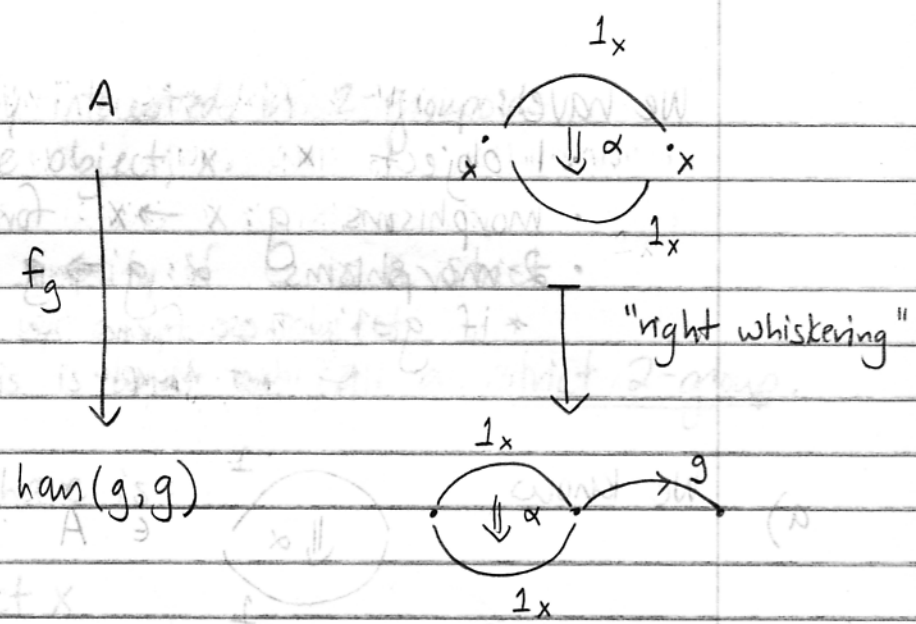 1x
A
x
⇓ α
x
1x
fg
"right whiskering"
1x
g
ham(g,g)
⇓ α
1x